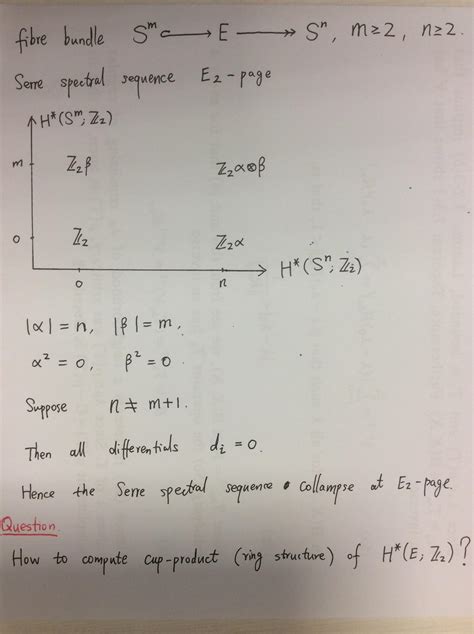 fibre bundle S^m ↪ E ↠ S^n, m≥2, n≥2.
Serre spectral sequence E₂-page
H*(S^m; ℤ₂)
m ℤ₂β ℤ₂α⊗β
0 ℤ₂ ℤ₂α
H*(S^n; ℤ₂)
0 n
|α| = n, |β| = m,
α² = 0, β² = 0
Suppose n ≠ m+1.
Then all differentials d_i = 0.
Hence the Serre spectral sequence collampse at E₂-page.
Question
How to compute cup-product (ring structure) of H*(E; ℤ₂)?